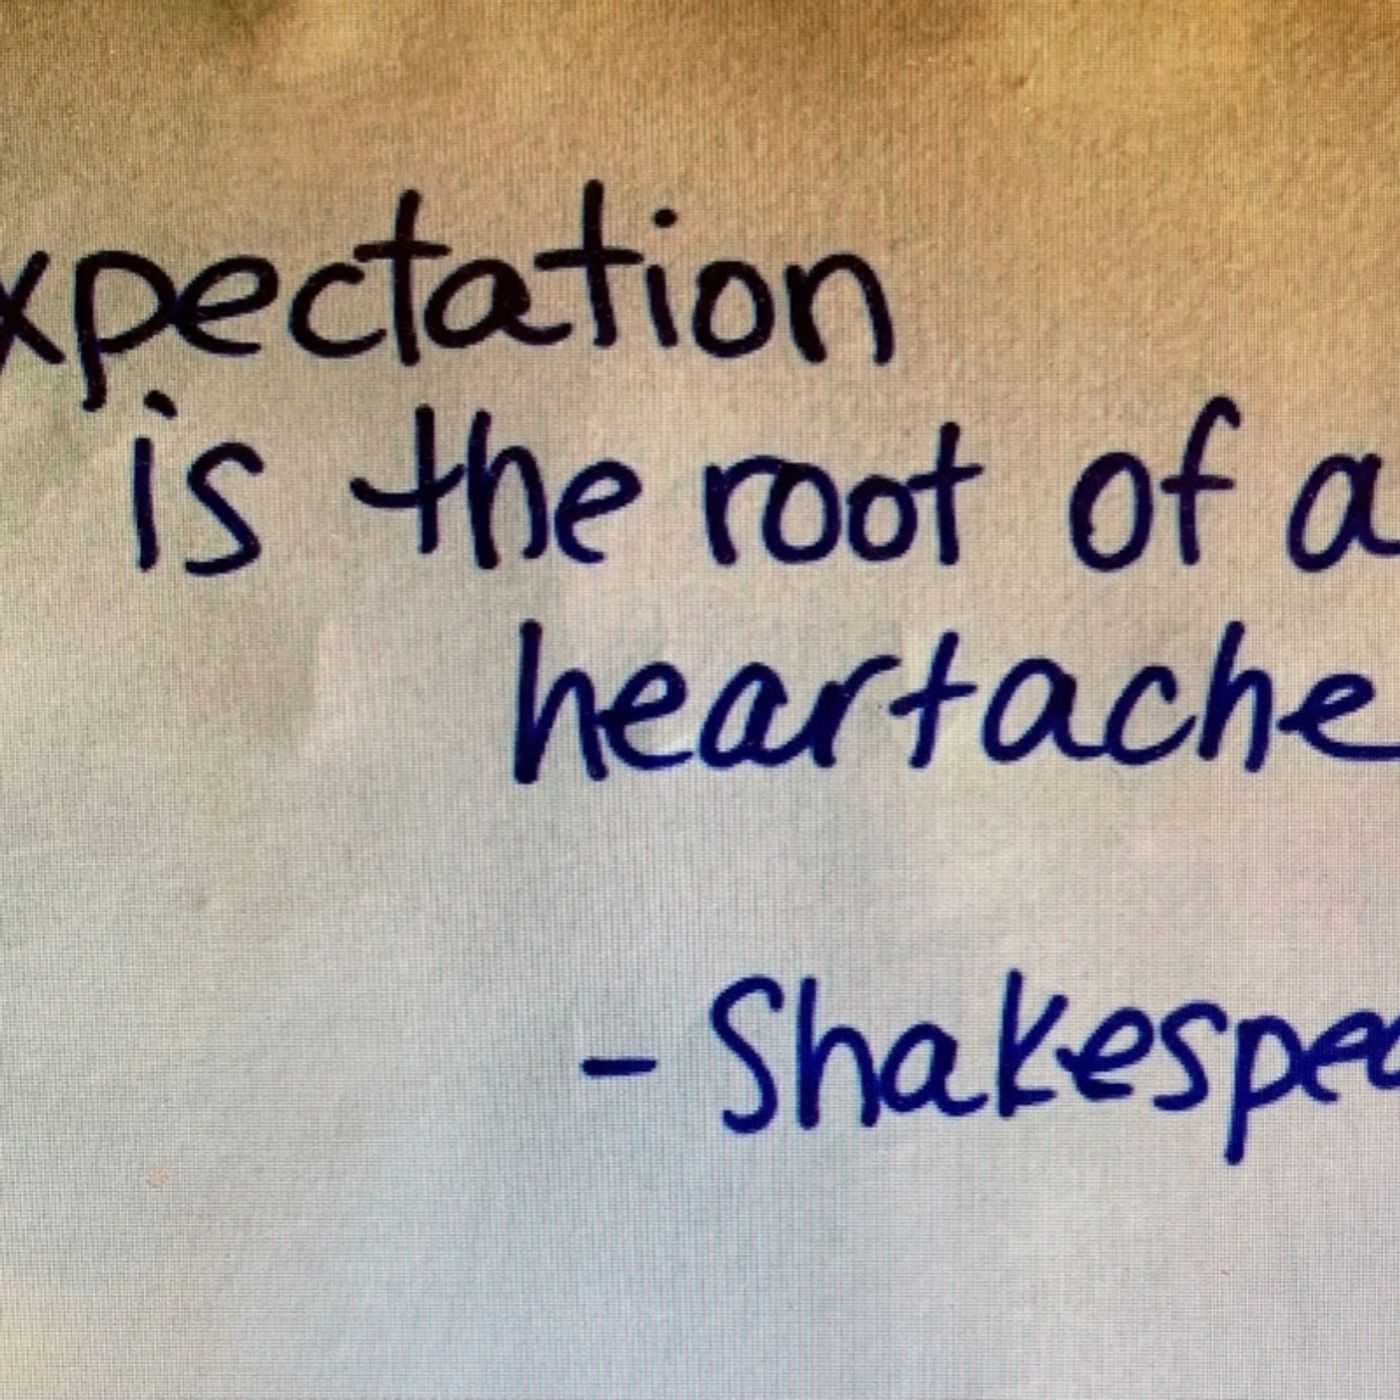 xpectation
is the root of a
heartache
- Shakespea